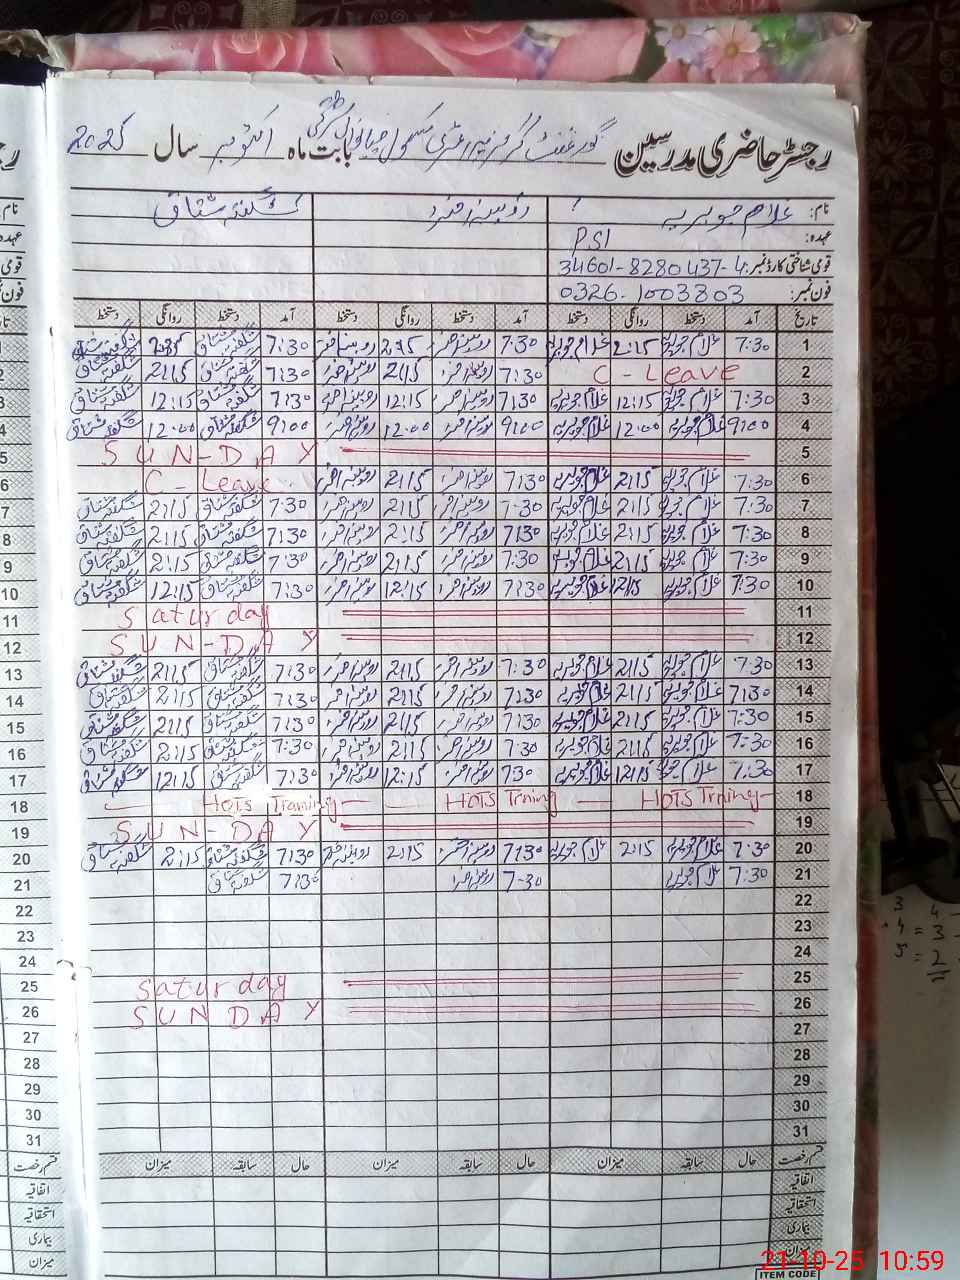 رجسٹر حاضری مدرسین گورنمنٹ گرلز پرائمری سکول بابت ماہ اکتوبر سال 2025
نام: غلام جویریہ روبینہ اختر شگفتہ مشتاق
عہدہ: PSI
قومی شناختی کارڈ نمبر: 34601-8280437-4
فون نمبر: 0326-1003803
تاریخ آمد دستخط روانگی دستخط آمد دستخط روانگی دستخط آمد دستخط روانگی دستخط
1 7:30 غلام جویریہ 2:15 غلام جویریہ 7:30 روبینہ اختر 2:15 روبینہ اختر 7:30 شگفتہ مشتاق شگفتہ مشتاق
2 C - Leave 7:30 روبینہ اختر 2:15 روبینہ اختر 7:30 شگفتہ مشتاق 2:15 شگفتہ مشتاق
3 7:30 غلام جویریہ 12:15 غلام جویریہ 7:30 روبینہ اختر 12:15 روبینہ اختر 7:30 شگفتہ مشتاق 12:15 شگفتہ مشتاق
4 9:00 غلام جویریہ 12:00 غلام جویریہ 9:00 روبینہ اختر 12:00 روبینہ اختر 9:00 شگفتہ مشتاق 12:00 شگفتہ مشتاق
5 SUN-DAY
6 7:30 غلام جویریہ 2:15 غلام جویریہ 7:30 روبینہ اختر 2:15 روبینہ اختر C - Leave
7 7:30 غلام جویریہ 2:15 غلام جویریہ 7:30 روبینہ اختر 2:15 روبینہ اختر 7:30 شگفتہ مشتاق 2:15 شگفتہ مشتاق
8 7:30 غلام جویریہ 2:15 غلام جویریہ 7:30 روبینہ اختر 2:15 روبینہ اختر 7:30 شگفتہ مشتاق 2:15 شگفتہ مشتاق
9 7:30 غلام جویریہ 2:15 غلام جویریہ 7:30 روبینہ اختر 2:15 روبینہ اختر 7:30 شگفتہ مشتاق 2:15 شگفتہ مشتاق
10 7:30 غلام جویریہ 12:15 غلام جویریہ 7:30 روبینہ اختر 12:15 روبینہ اختر 7:30 شگفتہ مشتاق 12:15 شگفتہ مشتاق
11 Saturday
12 SUN-DAY
13 7:30 غلام جویریہ 2:15 غلام جویریہ 7:30 روبینہ اختر 2:15 روبینہ اختر 7:30 شگفتہ مشتاق 2:15 شگفتہ مشتاق
14 7:30 غلام جویریہ 2:15 غلام جویریہ 7:30 روبینہ اختر 2:15 روبینہ اختر 7:30 شگفتہ مشتاق 2:15 شگفتہ مشتاق
15 7:30 غلام جویریہ 2:15 غلام جویریہ 7:30 روبینہ اختر 2:15 روبینہ اختر 7:30 شگفتہ مشتاق 2:15 شگفتہ مشتاق
16 7:30 غلام جویریہ 2:15 غلام جویریہ 7:30 روبینہ اختر 2:15 روبینہ اختر 7:30 شگفتہ مشتاق 2:15 شگفتہ مشتاق
17 7:30 غلام جویریہ 12:15 غلام جویریہ 7:30 روبینہ اختر 12:15 روبینہ اختر 7:30 شگفتہ مشتاق 12:15 شگفتہ مشتاق
18 HOTS Trning HOTS Trning HOTS Traning
19 SUN-DAY
20 7:30 غلام جویریہ 2:15 غلام جویریہ 7:30 روبینہ اختر 2:15 روبینہ اختر 7:30 شگفتہ مشتاق 2:15 شگفتہ مشتاق
21 7:30 غلام جویریہ 7-30 روبینہ اختر 7:30 شگفتہ مشتاق
22
23
24
25 Saturday
26 SUN DAY
27
28
29
30
31
قسم رخصت حال سابقہ میزان حال سابقہ میزان حال سابقہ میزان
اتفاقیہ
استحقاقیہ
بیماری
میزان
21-10-25 10:59
ITEM CODE